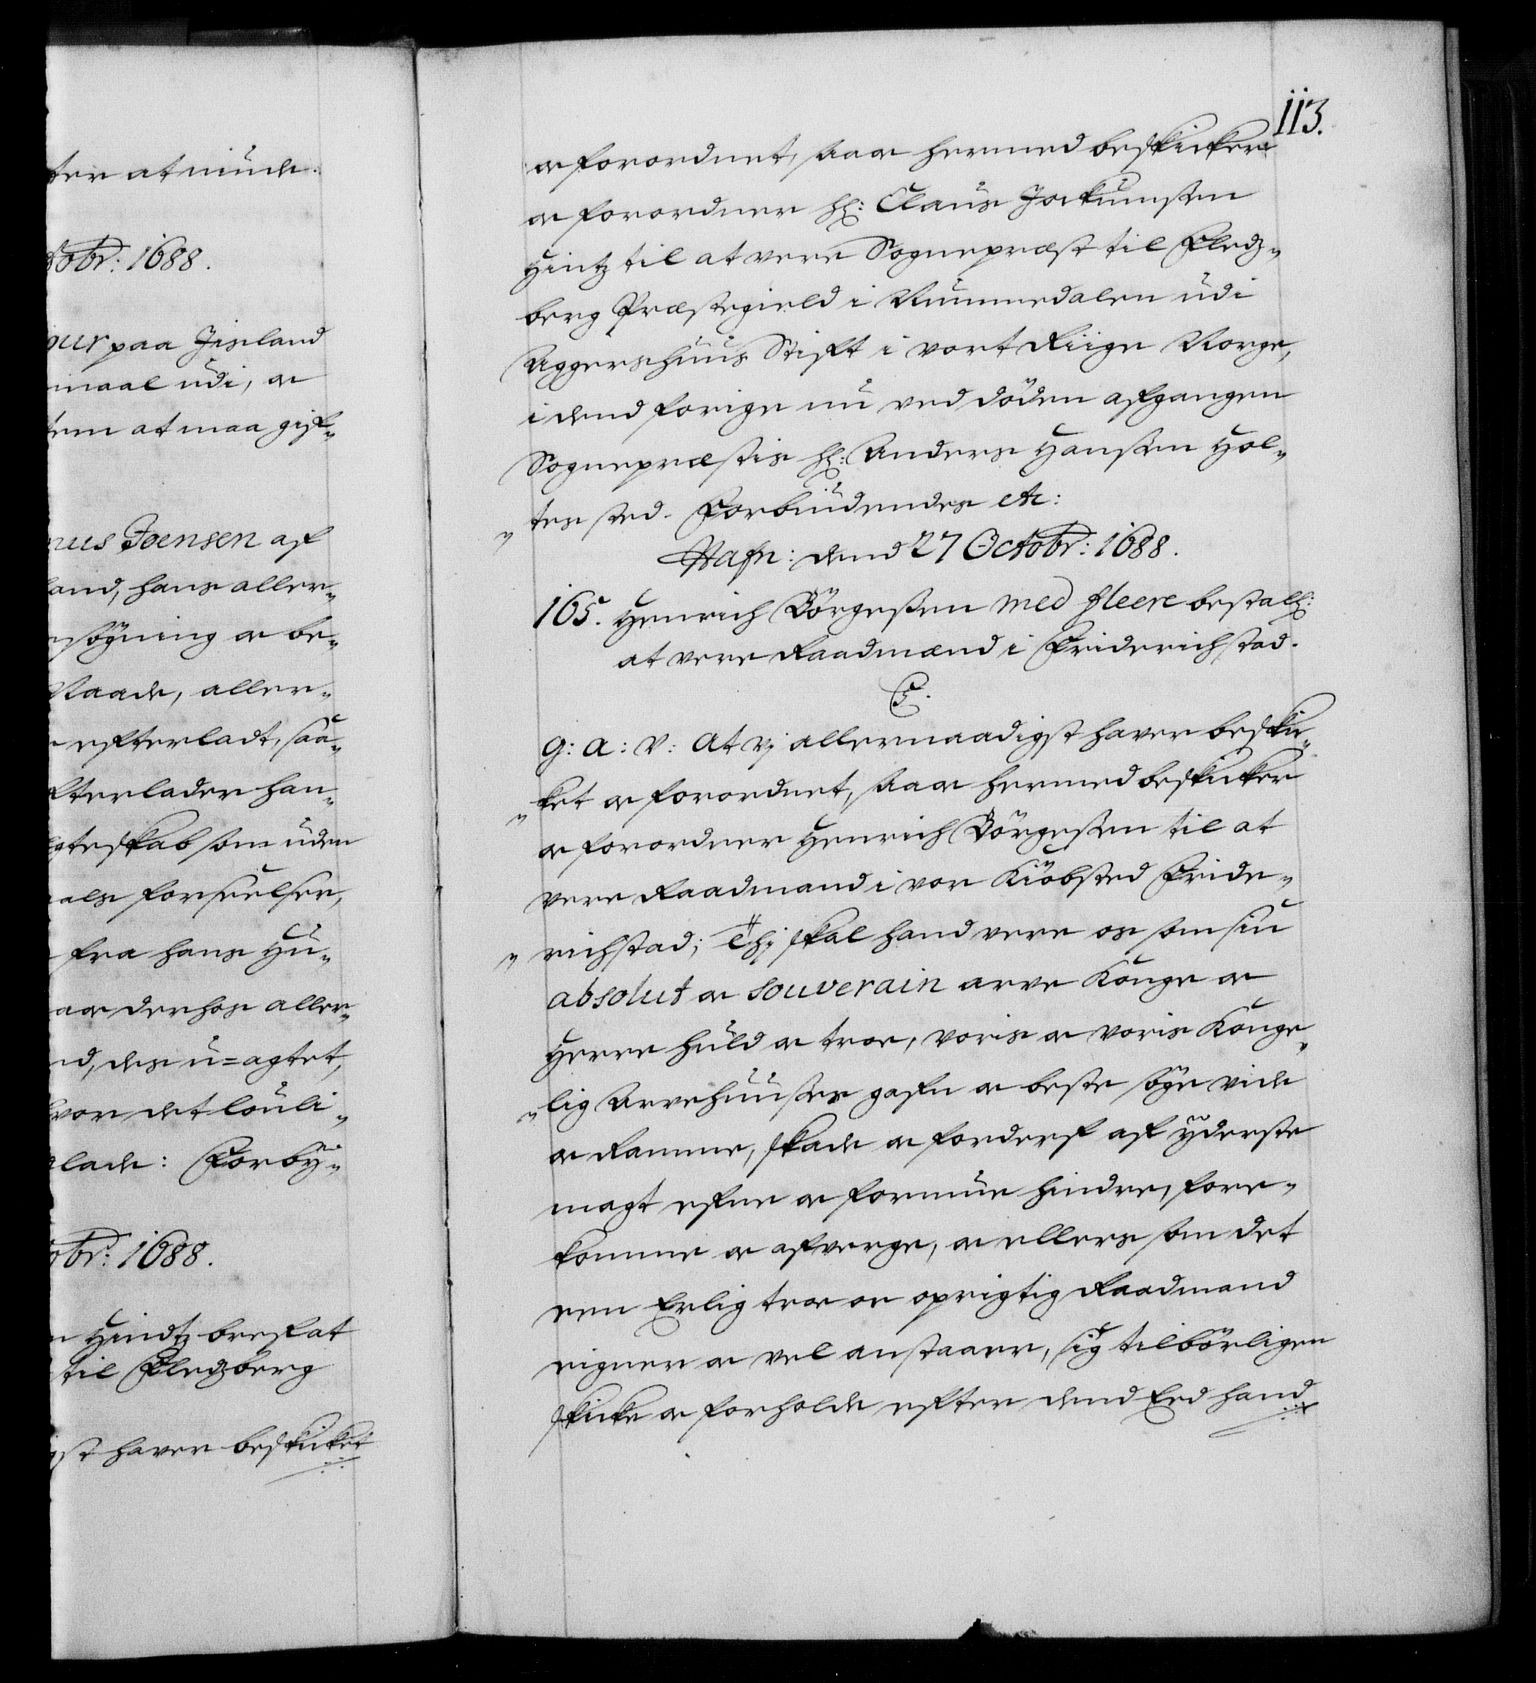 ter at niude.
tobr: 1688.
our paa Jisland
maal udi, oc
tem at maa gif-
nus Joensen af
land, hans aller-
nsøgning oc be-
Naade, aller-
efterladt, saa-
fterlader han-
gteskab som uden
als forseelser,
fra hans Hu-
aa derhos aller-
nd, des u=agtet,
vor det louli-
lade: Forby-
obr: 1688.
n Hindtz bref at
til Flesberg
gst hafver beskicket
113.
oc forordnet, saa oc hermed beskicker
oc forordner hr: Claus Jockumsen
Hintz til at vere Sognepræst til Fledz-
berg Præstegield i Nummedalen udi
Aggershuus Stift i vort Riige Norge,
i dend forige nu ved döden afgangen
Sognepræstis hr: Anders Hansen Hol-
tes sted. Forbiudendes etc:
Hafn: dend 27 Octobr: 1688.
165. Henrich Börgesen med fleere bestalh:
at vere Raadmænd i Friderichstad.
C.
G: A: V: At vj allernaadigst hafver beski-
cket oc forordnet, saa oc hermed beskicker
oc forordner Henrich Börgesen til at
vere Raadmand i vor Kiöbsted Fride-
richstad; Thj skal hand vere os som sin
absolut oc souverain arve Konge oc
Herre huld oc troe, voris oc voris Konge-
lig Arvehuuses gafn oc beste söge vide
oc Ramme, skade oc forderf af yderste
magt efne oc formue hindre, fore-
komme oc afverge, oc ellers som det
een Erlig troe oc oprigtig Raadmand
eigner oc vel anstaaer, sig tilbörligen
skicke oc forholde efter dend Eed hand